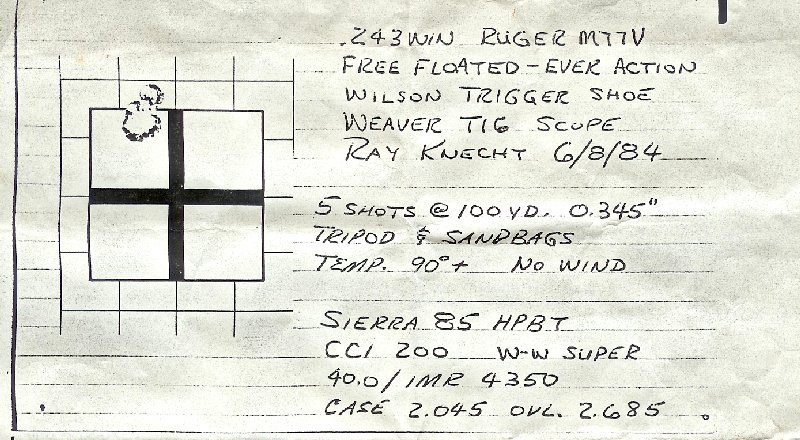 .243 WIN RUGER M77V
FREE FLOATED - EVER ACTION
WILSON TRIGGER SHOE
WEAVER T16 SCOPE
RAY KNECHT 6/8/84
5 SHOTS @ 100 YD. 0.345"
TRIPOD & SANDBAGS
TEMP. 90°+ NO WIND
SIERRA 85 HPBT
CCI 200 W-W SUPER
40.0 / IMR 4350
CASE 2.045 OVL. 2.685